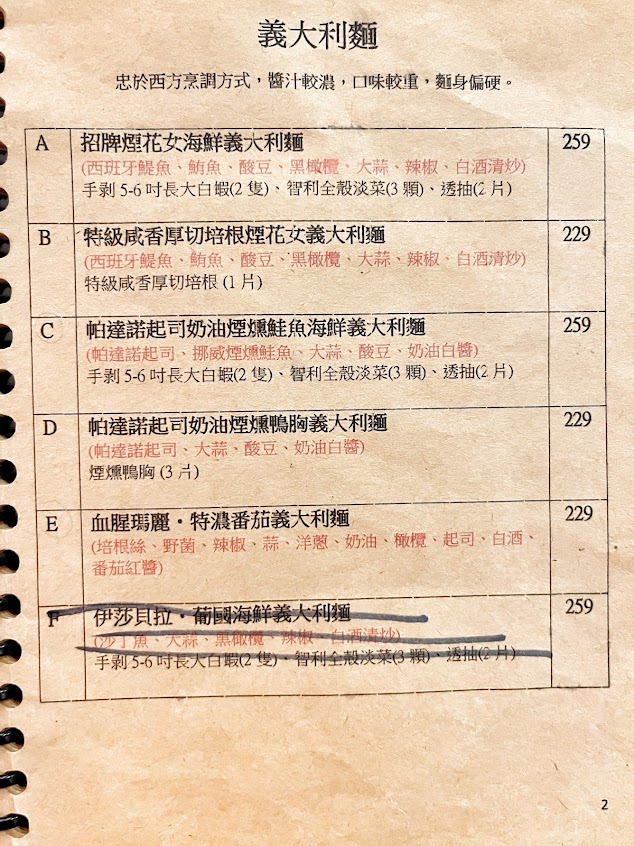 義大利麵
忠於西方烹調方式，醬汁較濃，口味較重，麵身偏硬。
A 招牌煙花女海鮮義大利麵 259
(西班牙鯷魚、鮪魚、酸豆、黑橄欖、大蒜、辣椒、白酒清炒)
手剥 5-6 吋長大白蝦(2 隻)、智利全殼淡菜(3 顆)、透抽(2 片)
B 特級咸香厚切培根煙花女義大利麵 229
(西班牙鯷魚、鮪魚、酸豆、黑橄欖、大蒜、辣椒、白酒清炒)
特級咸香厚切培根 (1 片)
C 帕達諾起司奶油煙燻鮭魚海鮮義大利麵 259
(帕達諾起司、挪威煙燻鮭魚、大蒜、酸豆、奶油白醬)
手剥 5-6 吋長大白蝦(2 隻)、智利全殼淡菜(3 顆)、透抽(2 片)
D 帕達諾起司奶油煙燻鴨胸義大利麵 229
(帕達諾起司、大蒜、酸豆、奶油白醬)
煙燻鴨胸 (3 片)
E 血腥瑪麗・特濃番茄義大利麵 229
(培根絲、野菌、辣椒、蒜、洋蔥、奶油、橄欖、起司、白酒、
番茄紅醬)
F 伊莎貝拉・葡國海鮮義大利麵 259
(沙丁魚、大蒜、黑橄欖、辣椒、白酒清炒)
手剥 5-6 吋長大白蝦(2 隻)、智利全殼淡菜(3 顆)、透抽(2 片)
2